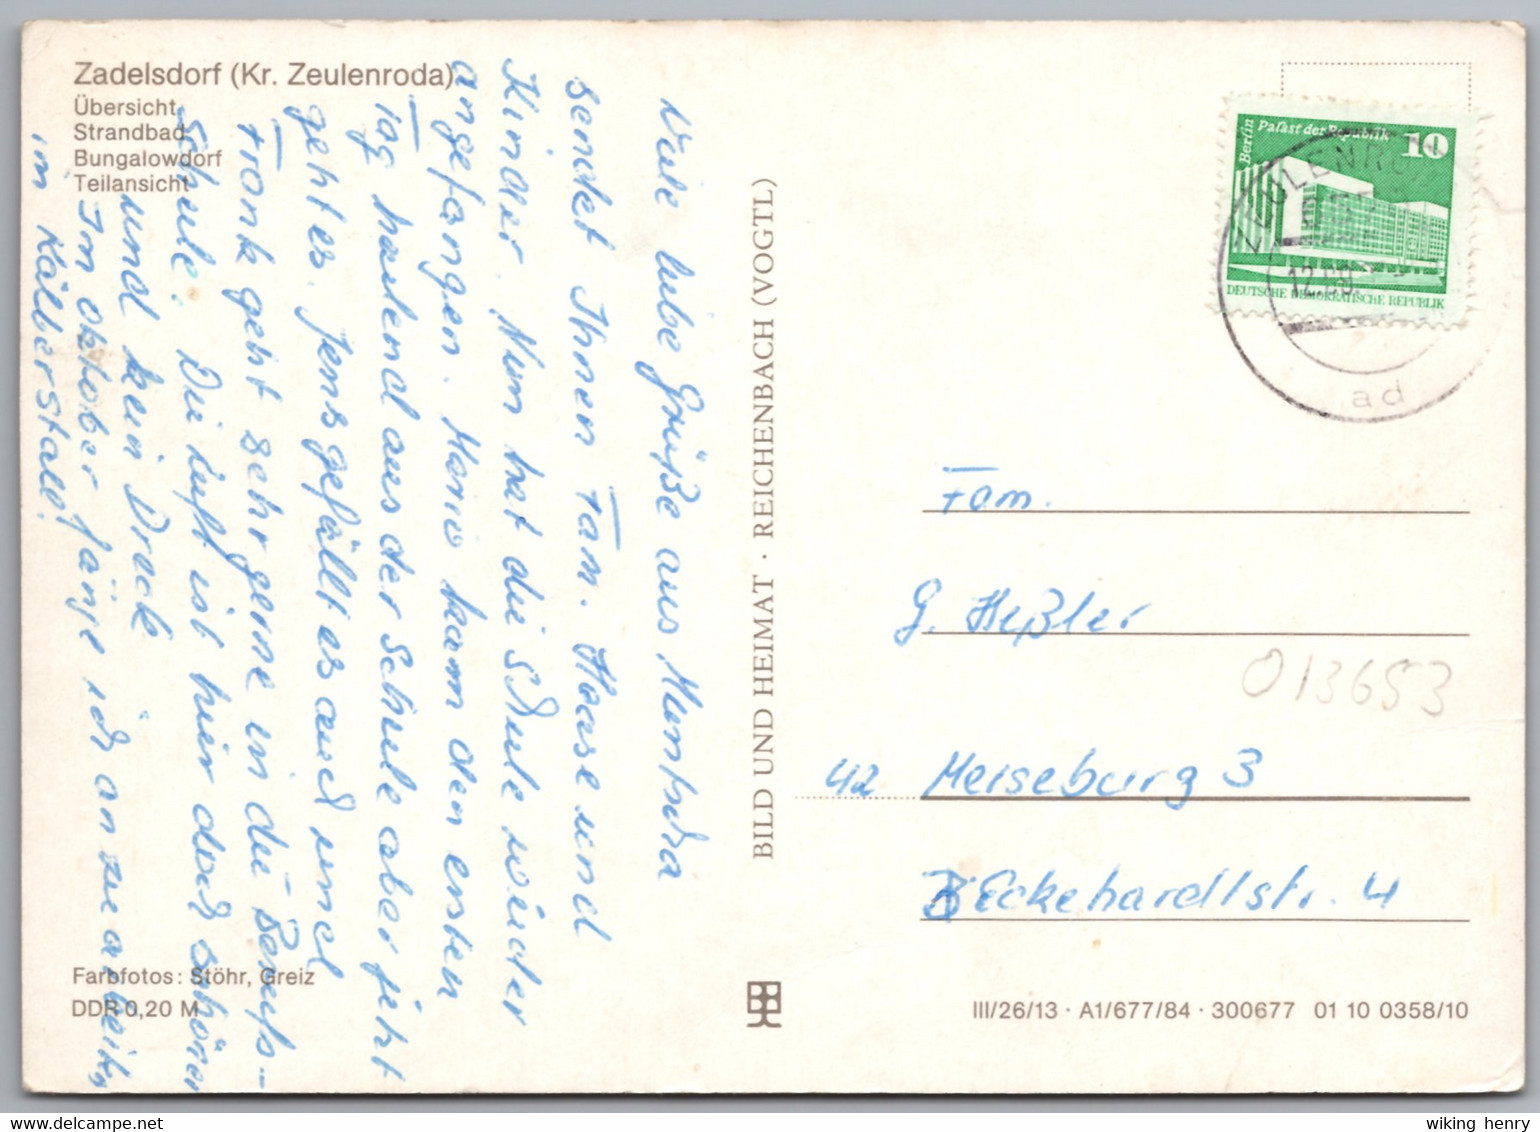 Zadelsdorf (Kr. Zeulenroda)
Übersicht
Strandbad
Bungalowdorf
Teilansicht
Viele liebe Grüße aus Muntscha
sendet Ihnen Fam. Haase und
Kinder. Nun hat die Schule wieder
angefangen. Mario kam den ersten
Tag heulend aus der Schule aber jetzt
geht es. Jens gefällt es auch und
Frank geht sehr gerne in die Berufs-
schule. Die Luft ist hier doch schöner
und kein Dreck
Im Oktober fange ich an zu arbeiten
im Kälberstall!
Farbfotos: Stöhr, Greiz
DDR 0,20 M
BILD UND HEIMAT · REICHENBACH (VOGTL)
Berlin
Palast der Republik
10
DEUTSCHE DEMOKRATISCHE REPUBLIK
ZEULENRO
12.09
ad
Fam.
G. Heßler
013653
42 Merseburg 3
Eckehardtstr. 4
III/26/13 · A1/677/84 · 300677 01 10 0358/10
wiking henry